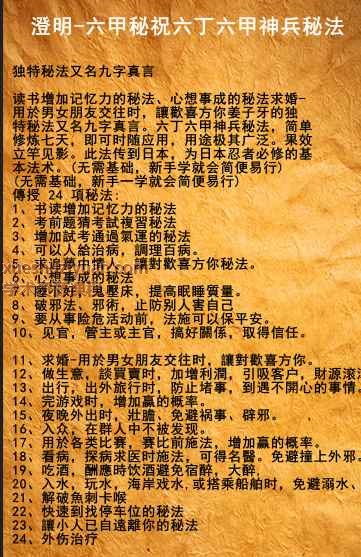 澄明-六甲秘祝六丁六甲神兵秘法
独特秘法又名九字真言
读书增加记忆力的秘法、心想事成的秘法求婚-
用於男女朋友交往时，讓歡喜方你姜子牙的独
特秘法又名九字真言。六丁六甲神兵秘法，简单
修炼七天，即可时随应用，用途极其广泛。果效
立竿见影。此法传到日本，为日本忍者必修的基
本法术。(无需基础，新手学就会简便易行)
(无需基础，新手一学就会简便易行)
傳授 24 項秘法：
1、书读增加记忆力的秘法
2、考前题猜考試複習秘法
3、增加試考通過氣運的秘法
4、可以人給治病，調理百病。
5、求追夢中情人，讓對歡喜方你秘法。
6、心想事成的秘法
7、睡不好、鬼壓床，提高眠睡質量。
8、破邪法、邪術，止防别人害自己
9、要从事险危活动前，法施可以保平安。
10、见官，管主或主官，搞好關係，取得信任。
11、求婚-用於男女朋友交往时，讓對歡喜方你。
12、做生意，談買賣时，加增利潤，引吸客户，財源滚滚
13、出行，出外旅行时，防止堵事，到遇不開心的事情。
14、完游戏时，增加贏的概率。
15、夜晚外出时，壯膽、免避禍事、辟邪。
16、入众，在群人中不被发现。
17、用於各类比赛，赛比前施法，增加赢的概率。
18、看病，探病求医时施法，可得名醫。免避撞上外邪。
19、吃酒，酬應時饮酒避免宿醉，大醉
20、入水，玩水，海岸戏水，或搭乘船舶时，免避溺水、
21、解破魚刺卡喉
22、快速到找停车位的秘法
23、讓小人已自遠離你的秘法
24、外伤治疗